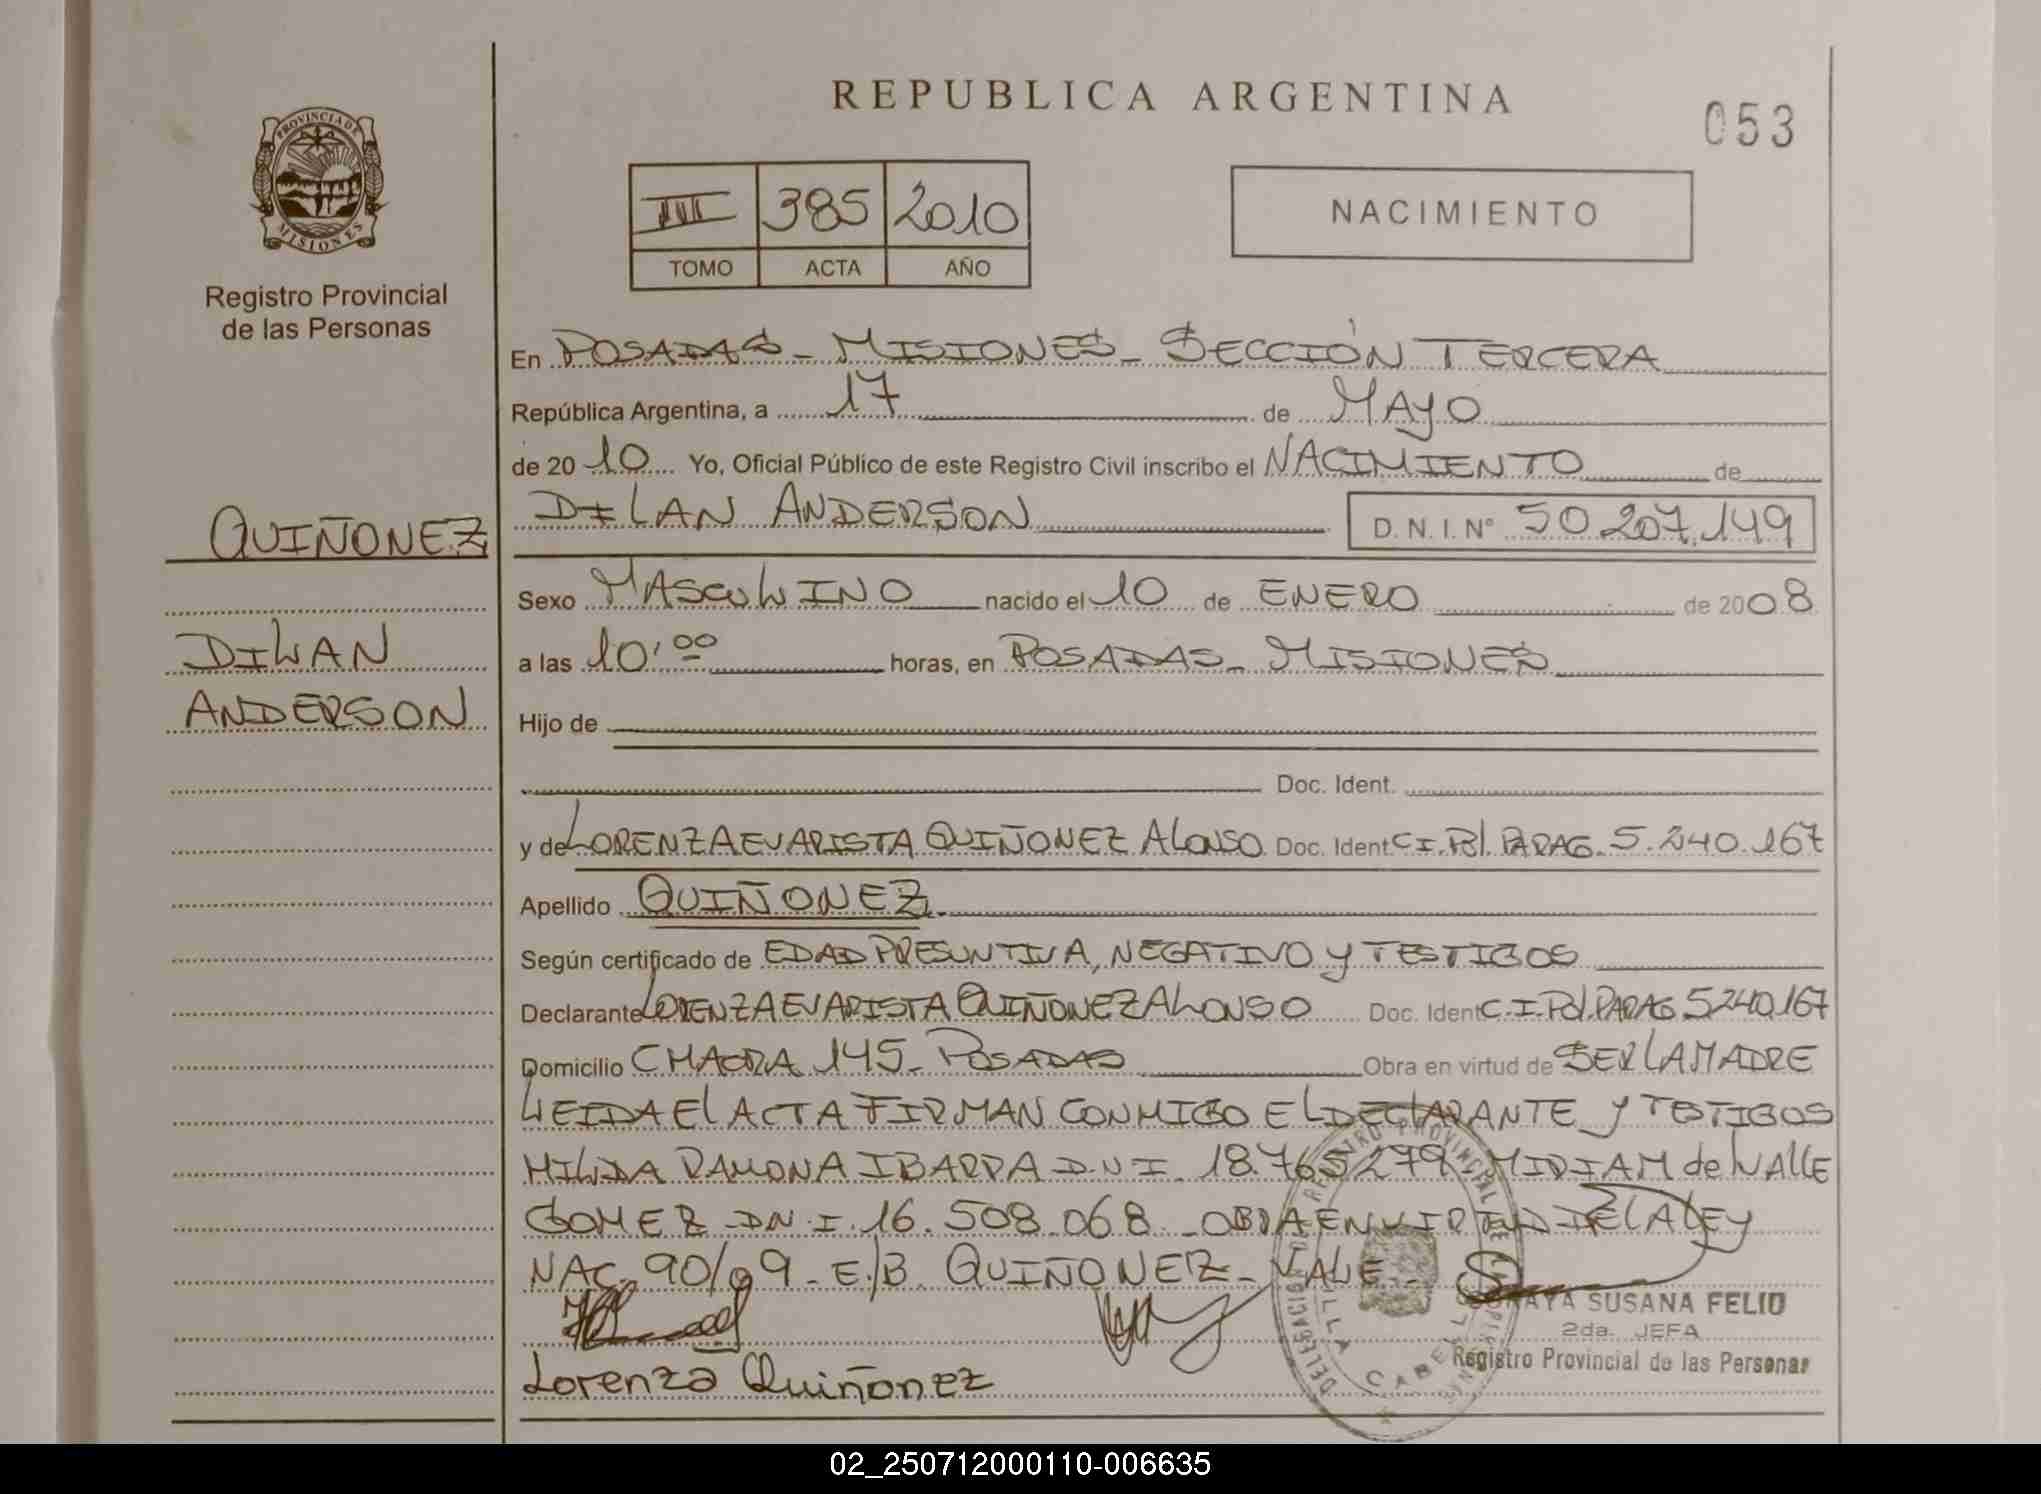 REPUBLICA ARGENTINA
053
PROVINCIA DE MISIONES
Registro Provincial
de las Personas
III 385 2010
TOMO ACTA AÑO
NACIMIENTO
En POSADAS - MISIONES - SECCIÓN TERCERA
República Argentina, a 17 de MAYO
de 2010 Yo, Oficial Público de este Registro Civil inscribo el NACIMIENTO de
DILAN ANDERSON D.N.I. Nº 50.207.149
QUIÑONEZ
DILAN
ANDERSON
Sexo MASCULINO nacido el 10 de ENERO de 2008
a las 10,00 horas, en POSADAS - MISIONES
Hijo de
Doc. Ident.
y de LORENZA EVARISTA QUIÑONEZ ALONSO Doc. Ident. C.I. Pol. PARAG. 5.240.167
Apellido QUIÑONEZ
Según certificado de EDAD PRESUNTIVA, NEGATIVO Y TESTIGOS
Declarante LORENZA EVARISTA QUIÑONEZ ALONSO Doc. Ident C.I. Pol. PARAG 5240.167
Domicilio CHACRA 145 - POSADAS Obra en virtud de SER LA MADRE
LEIDA El ACTA FIRMAN CONMIGO EL DECLARANTE Y TESTIGOS
HILDA RAMONA IBARRA D.N.I. 18.765.279 - MIRIAM del VALLE
GOMEZ D.N.I. 16.508.068 - OBRA EN VIRTUD DE LA LEY
NAC. 90/09 - E/B. QUIÑONEZ - VALE -
Lorenza Quiñonez
SORAYA SUSANA FELIU
2da. JEFA
Registro Provincial de las Personas
02_250712000110-006635